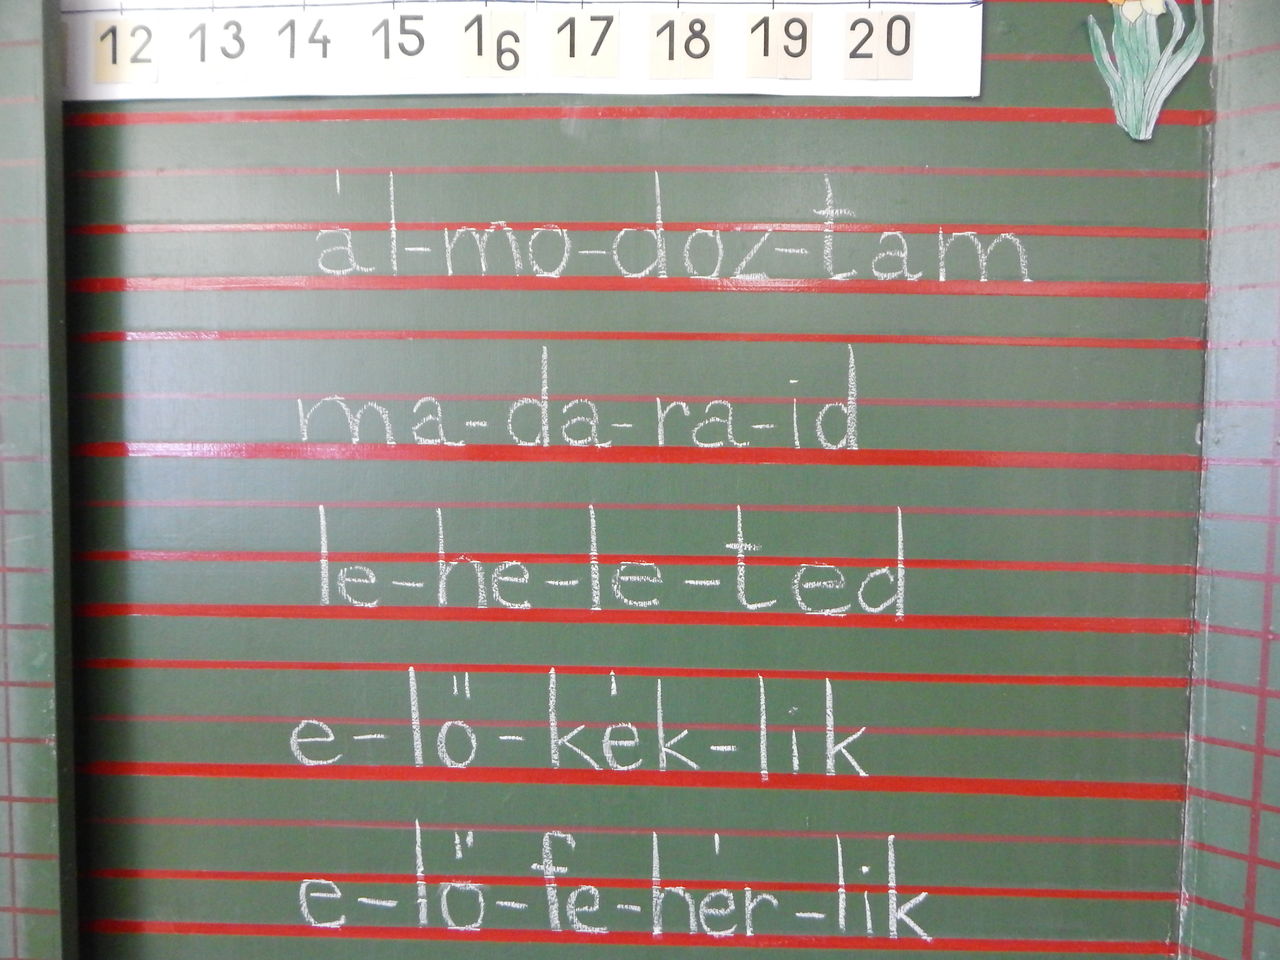 12 13 14 15 16 17 18 19 20
ál-mo-doz-tam
ma-da-ra-id
le-he-le-ted
e-lő-kék-lik
e-lő-fe-hér-lik